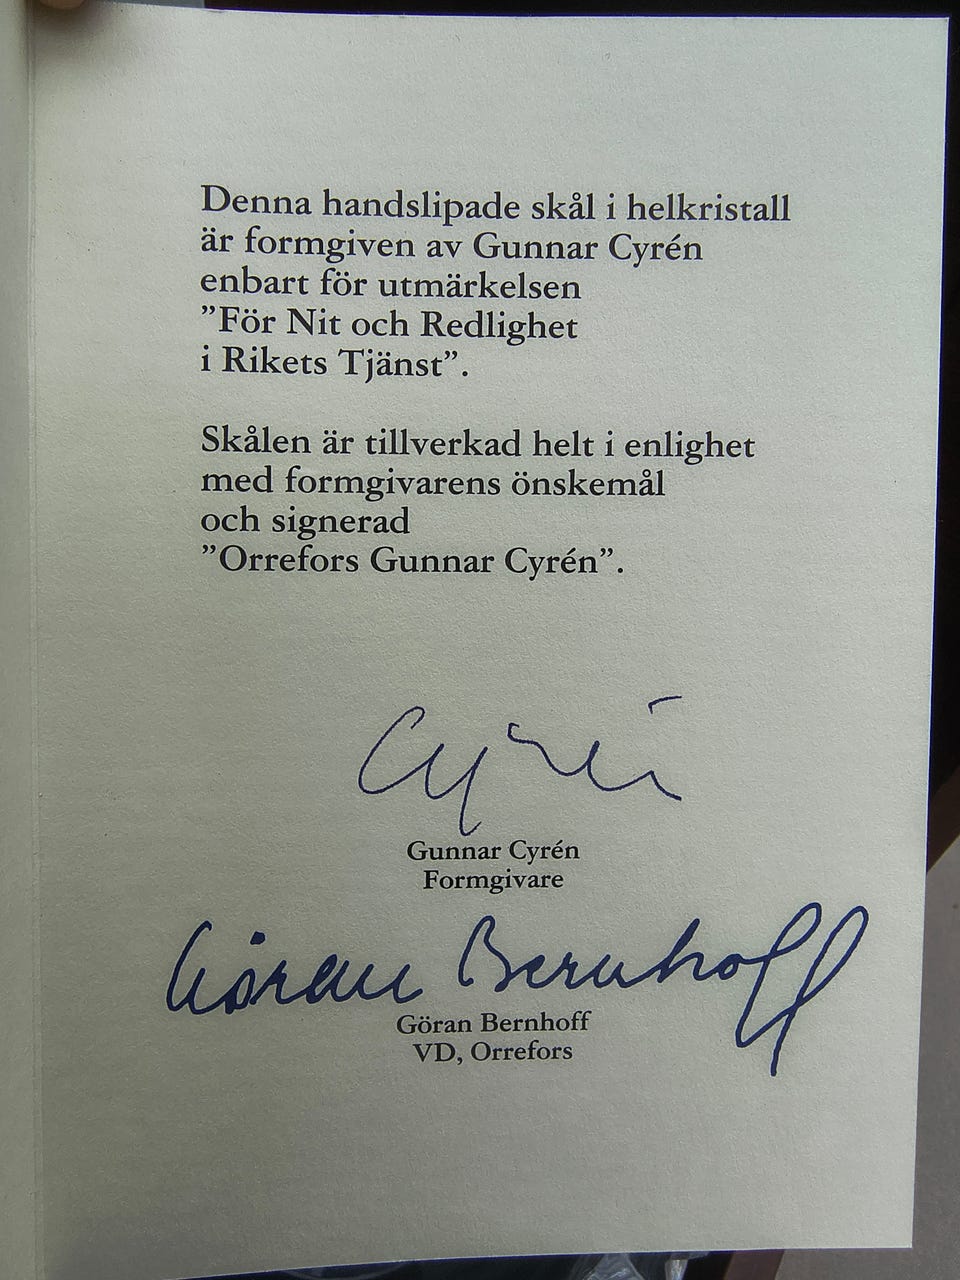 Denna handslipade skål i helkristall
är formgiven av Gunnar Cyrén
enbart för utmärkelsen
”För Nit och Redlighet
i Rikets Tjänst”.
Skålen är tillverkad helt i enlighet
med formgivarens önskemål
och signerad
”Orrefors Gunnar Cyrén”.
Cyrén
Gunnar Cyrén
Formgivare
Göran Bernhoff
Göran Bernhoff
VD, Orrefors